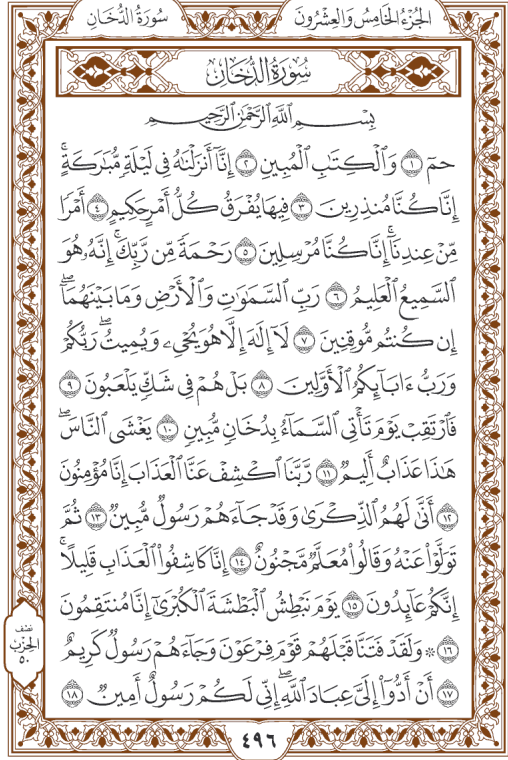 الجُزْءُ الخَامِسُ وَالعِشْرُونَ
سُورَةُ الدُّخَانِ
سُورَةُ الدُّخَانِ
بِسْمِ ٱللَّهِ ٱلرَّحْمَٰنِ ٱلرَّحِيمِ
حمٓ ١ وَٱلْكِتَٰبِ ٱلْمُبِينِ ٢ إِنَّآ أَنزَلْنَٰهُ فِى لَيْلَةٍ مُّبَٰرَكَةٍ ۚ
إِنَّا كُنَّا مُنذِرِينَ ٣ فِيهَا يُفْرَقُ كُلُّ أَمْرٍ حَكِيمٍ ٤ أَمْرًا
مِّنْ عِندِنَآ ۚ إِنَّا كُنَّا مُرْسِلِينَ ٥ رَحْمَةً مِّن رَّبِّكَ ۚ إِنَّهُۥ هُوَ
ٱلسَّمِيعُ ٱلْعَلِيمُ ٦ رَبِّ ٱلسَّمَٰوَٰتِ وَٱلْأَرْضِ وَمَا بَيْنَهُمَآ ۖ
إِن كُنتُم مُّوقِنِينَ ٧ لَآ إِلَٰهَ إِلَّا هُوَ يُحْىِۦ وَيُمِيتُ ۖ رَبُّكُمْ
وَرَبُّ ءَابَآئِكُمُ ٱلْأَوَّلِينَ ٨ بَلْ هُمْ فِى شَكٍّ يَلْعَبُونَ ٩
فَٱرْتَقِبْ يَوْمَ تَأْتِى ٱلسَّمَآءُ بِدُخَانٍ مُّبِينٍ ١٠ يَغْشَى ٱلنَّاسَ ۖ
هَٰذَا عَذَابٌ أَلِيمٌ ١١ رَّبَّنَا ٱكْشِفْ عَنَّا ٱلْعَذَابَ إِنَّا مُؤْمِنُونَ
١٢ أَنَّىٰ لَهُمُ ٱلذِّكْرَىٰ وَقَدْ جَآءَهُمْ رَسُولٌ مُّبِينٌ ١٣ ثُمَّ
تَوَلَّوْا۟ عَنْهُ وَقَالُوا۟ مُعَلَّمٌ مَّجْنُونٌ ١٤ إِنَّا كَاشِفُوا۟ ٱلْعَذَابِ قَلِيلًا ۚ
إِنَّكُمْ عَآئِدُونَ ١٥ يَوْمَ نَبْطِشُ ٱلْبَطْشَةَ ٱلْكُبْرَىٰٓ إِنَّا مُنتَقِمُونَ
١٦ ۞ وَلَقَدْ فَتَنَّا قَبْلَهُمْ قَوْمَ فِرْعَوْنَ وَجَآءَهُمْ رَسُولٌ كَرِيمٌ
١٧ أَنْ أَدُّوٓا۟ إِلَىَّ عِبَادَ ٱللَّهِ ۖ إِنِّى لَكُمْ رَسُولٌ أَمِينٌ ١٨
نصف
الحزب
٥٠
٤٩٦